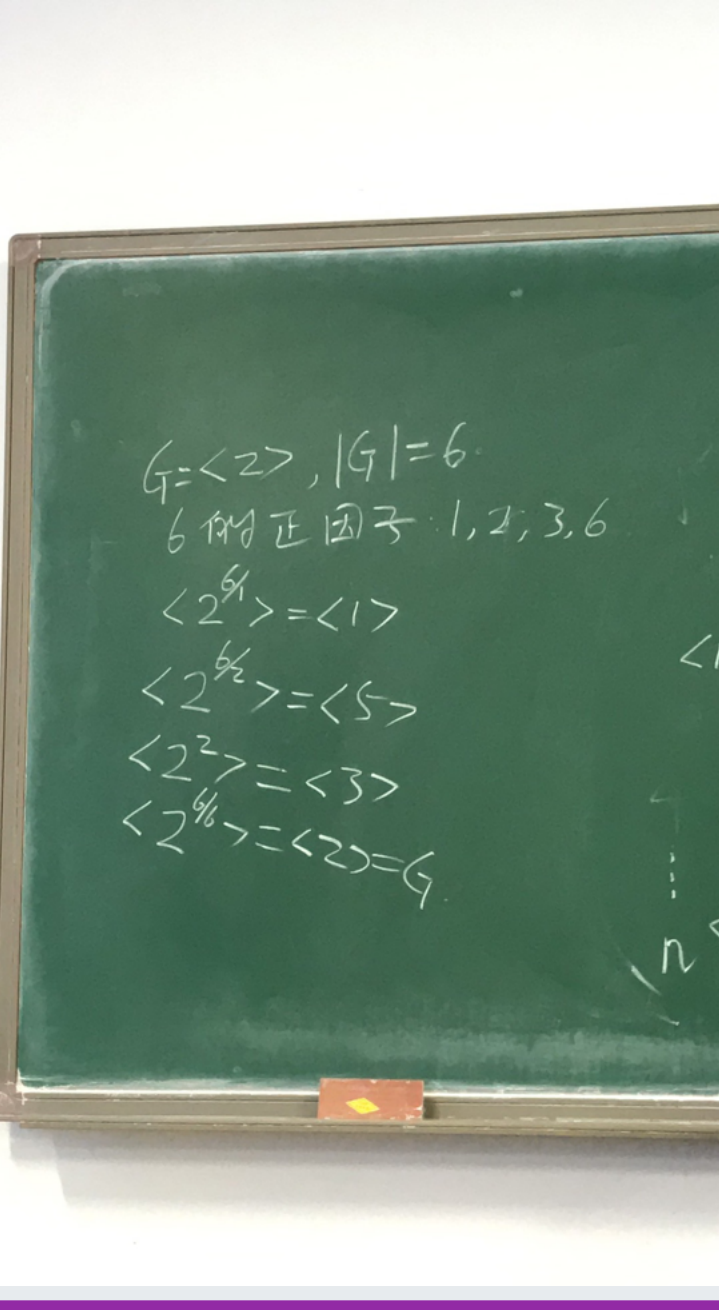 G=<2>, |G|=6.
6的正因子:1,2,3,6
<2^{6/1}>=<1>
<2^{6/2}>=<5>
<2^2>=<3>
<2^{6/6}>=<2>=G.
<1
n <